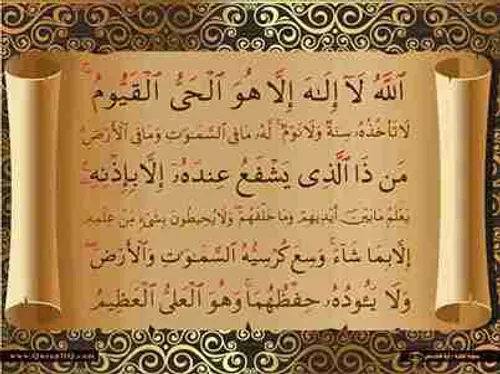 ٱللَّهُ لَآ إِلَـٰهَ إِلَّا هُوَ ٱلْحَىُّ ٱلْقَيُّومُ ۚ
لَا تَأْخُذُهُۥ سِنَةٌ وَلَا نَوْمٌ ۚ لَّهُۥ مَا فِى ٱلسَّمَـٰوَٰتِ وَمَا فِى ٱلْأَرْضِ ۗ
مَن ذَا ٱلَّذِى يَشْفَعُ عِندَهُۥٓ إِلَّا بِإِذْنِهِۦ ۚ
يَعْلَمُ مَا بَيْنَ أَيْدِيهِمْ وَمَا خَلْفَهُمْ ۖ وَلَا يُحِيطُونَ بِشَىْءٍ مِّنْ عِلْمِهِۦٓ
إِلَّا بِمَا شَآءَ ۚ وَسِعَ كُرْسِيُّهُ ٱلسَّمَـٰوَٰتِ وَٱلْأَرْضَ ۖ
وَلَا يَـُٔودُهُۥ حِفْظُهُمَا ۚ وَهُوَ ٱلْعَلِىُّ ٱلْعَظِيمُ